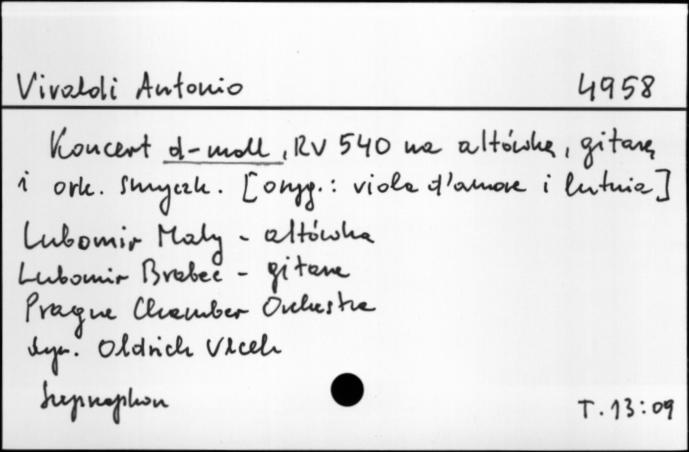 Vivaldi Antonio 4958
Koncert d-moll, RV 540 na altówkę, gitarę
i ork. smyczk. [oryg.: viola d'amore i lutnia]
Lubomir Maly - altówka
Lubomir Brabec - gitara
Prague Chamber Orchestra
dyr. Oldrich Vlcek
Supraphon T. 13:09